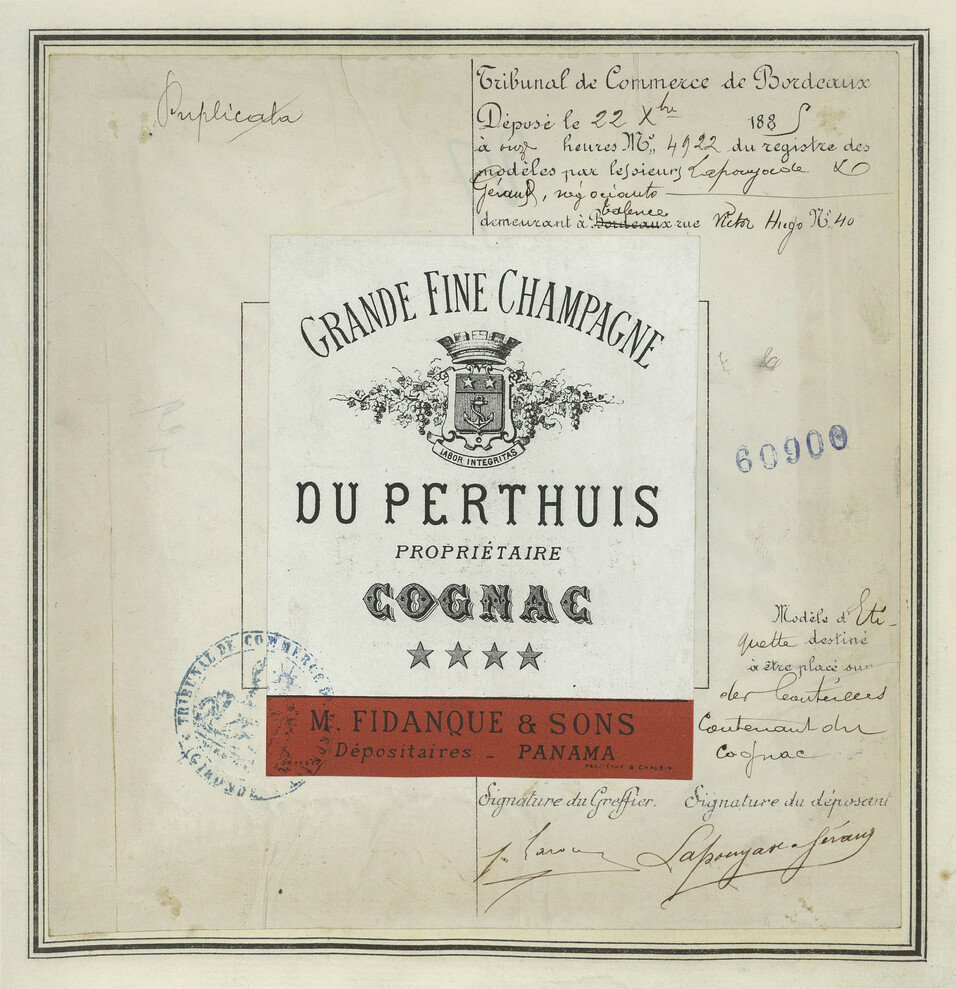 Duplicata
Tribunal de Commerce de Bordeaux
Déposé le 22 Xbre 1885
à onze heures N° 4922 du registre des
modèles par les sieurs Lapouyade &
Géraud, négociants
demeurant à Bordeaux Talence rue Victor Hugo N° 40
GRANDE FINE CHAMPAGNE
LABOR INTEGRITAS
DU PERTHUIS
PROPRIÉTAIRE
COGNAC
M. FIDANQUE & SONS
Dépositaires _ PANAMA
60900
Modèle d'Eti-
quette destiné
à être placé sur
des bouteilles
Contenant du
Cognac
TRIBUNAL DE COMMERCE
Signature du Greffier. Signature du déposant
Lapouyade & Géraud